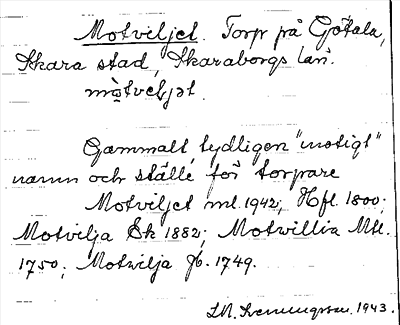 Motviljet. Torp på Götala,
Skara stad, Skaraborgs län.
mòtveljət.
Gammalt, tydligen "motigt"
namn och ställe för torpare
Motviljet ml. 1942; Hfl. 1800;
Motvilja Ek 1882; Motwillia Mtl.
1750; Motwilja Jb. 1749.
1943.